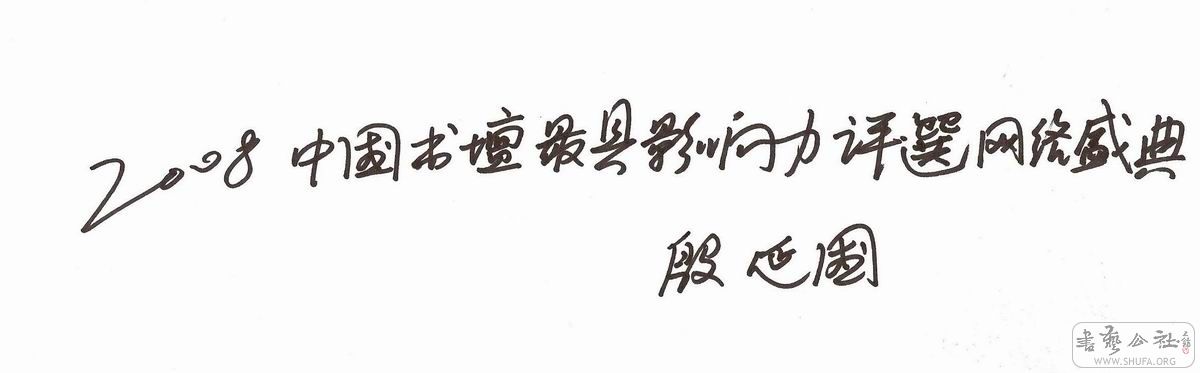 2008中国书坛最具影响力评選网络盛典
殷延国
書藝公社
WWW.SHUFA.ORG